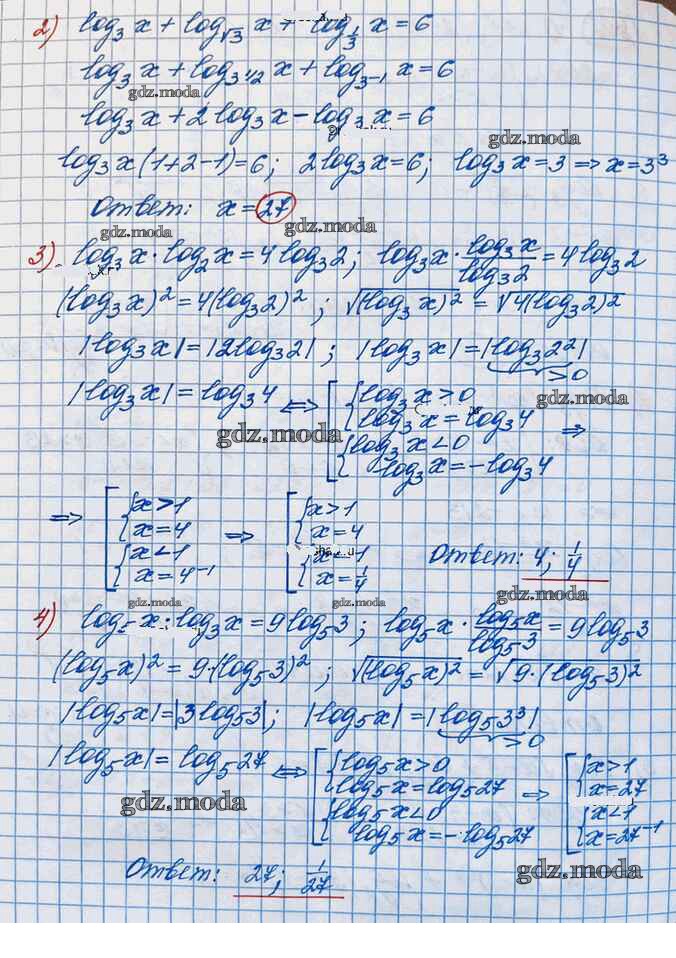 2) log₃ x + log_√3 x + log_1/3 x = 6
log₃ x + log_3^1/2 x + log_3^-1 x = 6
gdz.moda
log₃ x + 2 log₃ x - log₃ x = 6
gdz.moda
log₃ x (1+2-1) = 6; 2 log₃ x = 6; log₃ x = 3 => x = 3³
Ответ: x = 27
gdz.moda gdz.moda
3) log₃ x · log₂ x = 4 log₃ 2; log₃ x · log₃ x / log₃ 2 = 4 log₃ 2
(log₃ x)² = 4(log₃ 2)²; √(log₃ x)² = √4(log₃ 2)²
|log₃ x| = |2 log₃ 2|; |log₃ x| = |log₃ 2²|
> 0
|log₃ x| = log₃ 4 <=> [ { log₃ x > 0
gdz.moda
log₃ x = log₃ 4 =>
gdz.moda
{ log₃ x < 0
log₃ x = - log₃ 4
=> [ { x > 1 => [ { x > 1
x = 4 x = 4
{ x < 1 Ответ: 4; 1/4
x = 4⁻¹ x = 1/4
gdz.moda
gdz.moda gdz.moda
4) log₅ x · log₃ x = 9 log₅ 3; log₅ x · log₅ x / log₅ 3 = 9 log₅ 3
(log₅ x)² = 9·(log₅ 3)²; √(log₅ x)² = √9·(log₅ 3)²
|log₅ x| = |3 log₅ 3|; |log₅ x| = |log₅ 3³|
> 0
|log₅ x| = log₅ 27 <=> [ { log₅ x > 0 => [ { x > 1
log₅ x = log₅ 27 x = 27
gdz.moda
{ log₅ x < 0 { x < 1
log₅ x = - log₅ 27 x = 27⁻¹
Ответ: 27; 1/27
gdz.moda